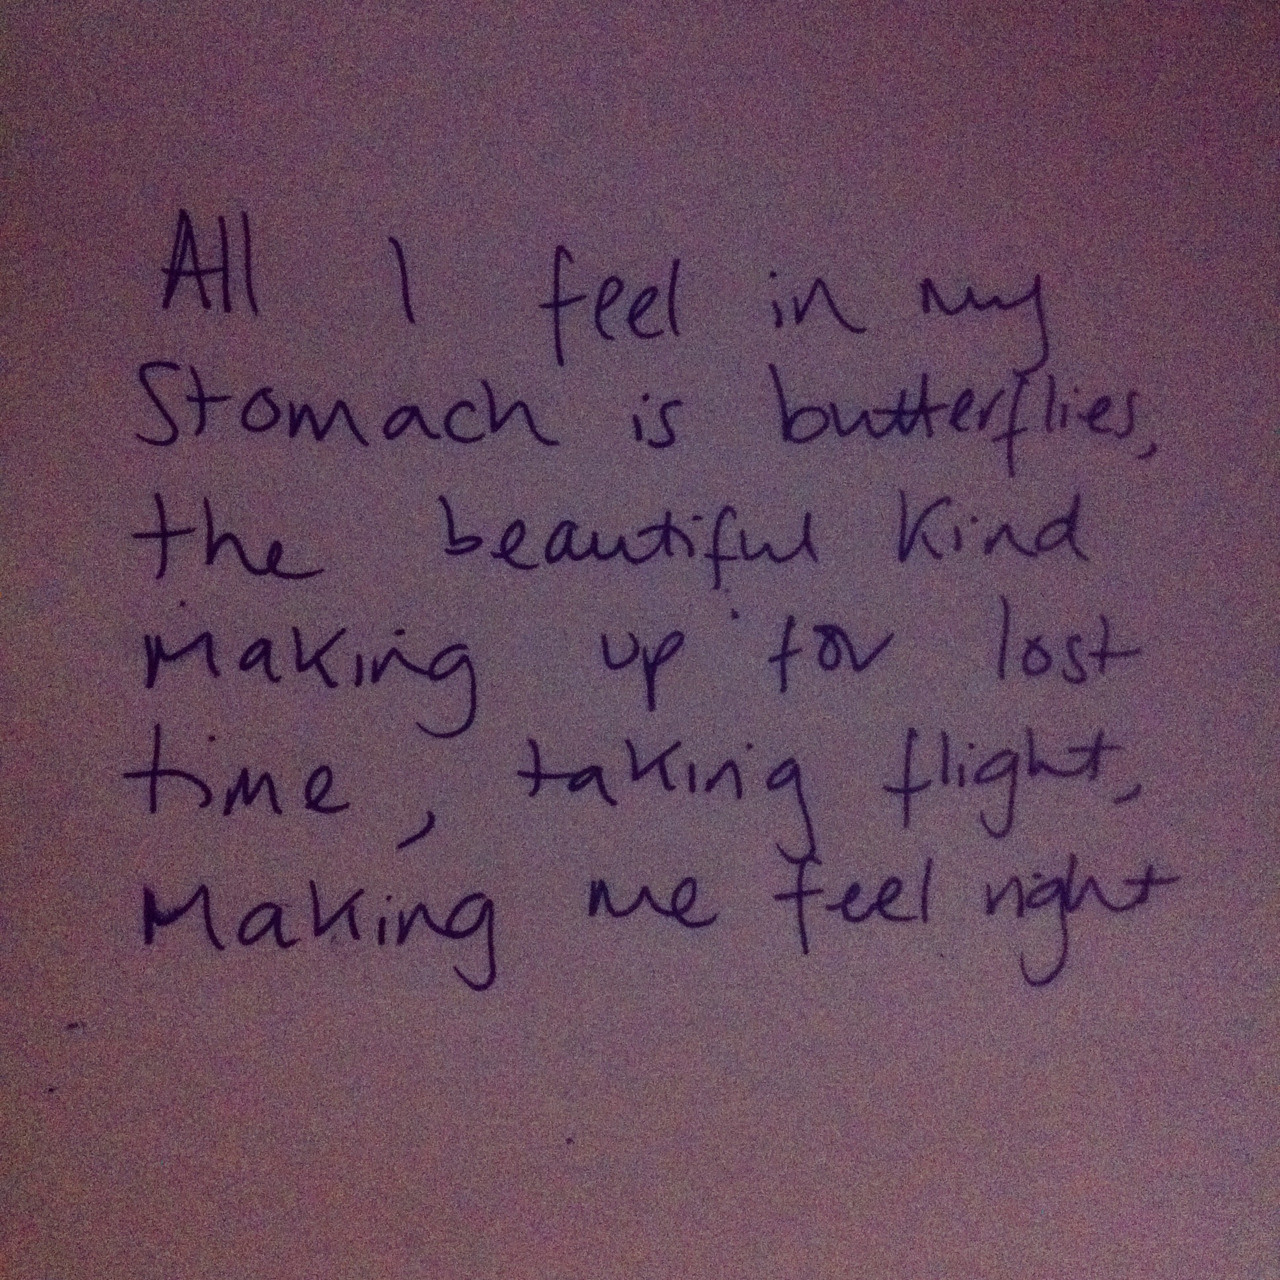 All I feel in my
Stomach is butterflies,
the beautiful kind
Making up for lost
time, taking flight,
Making me feel right